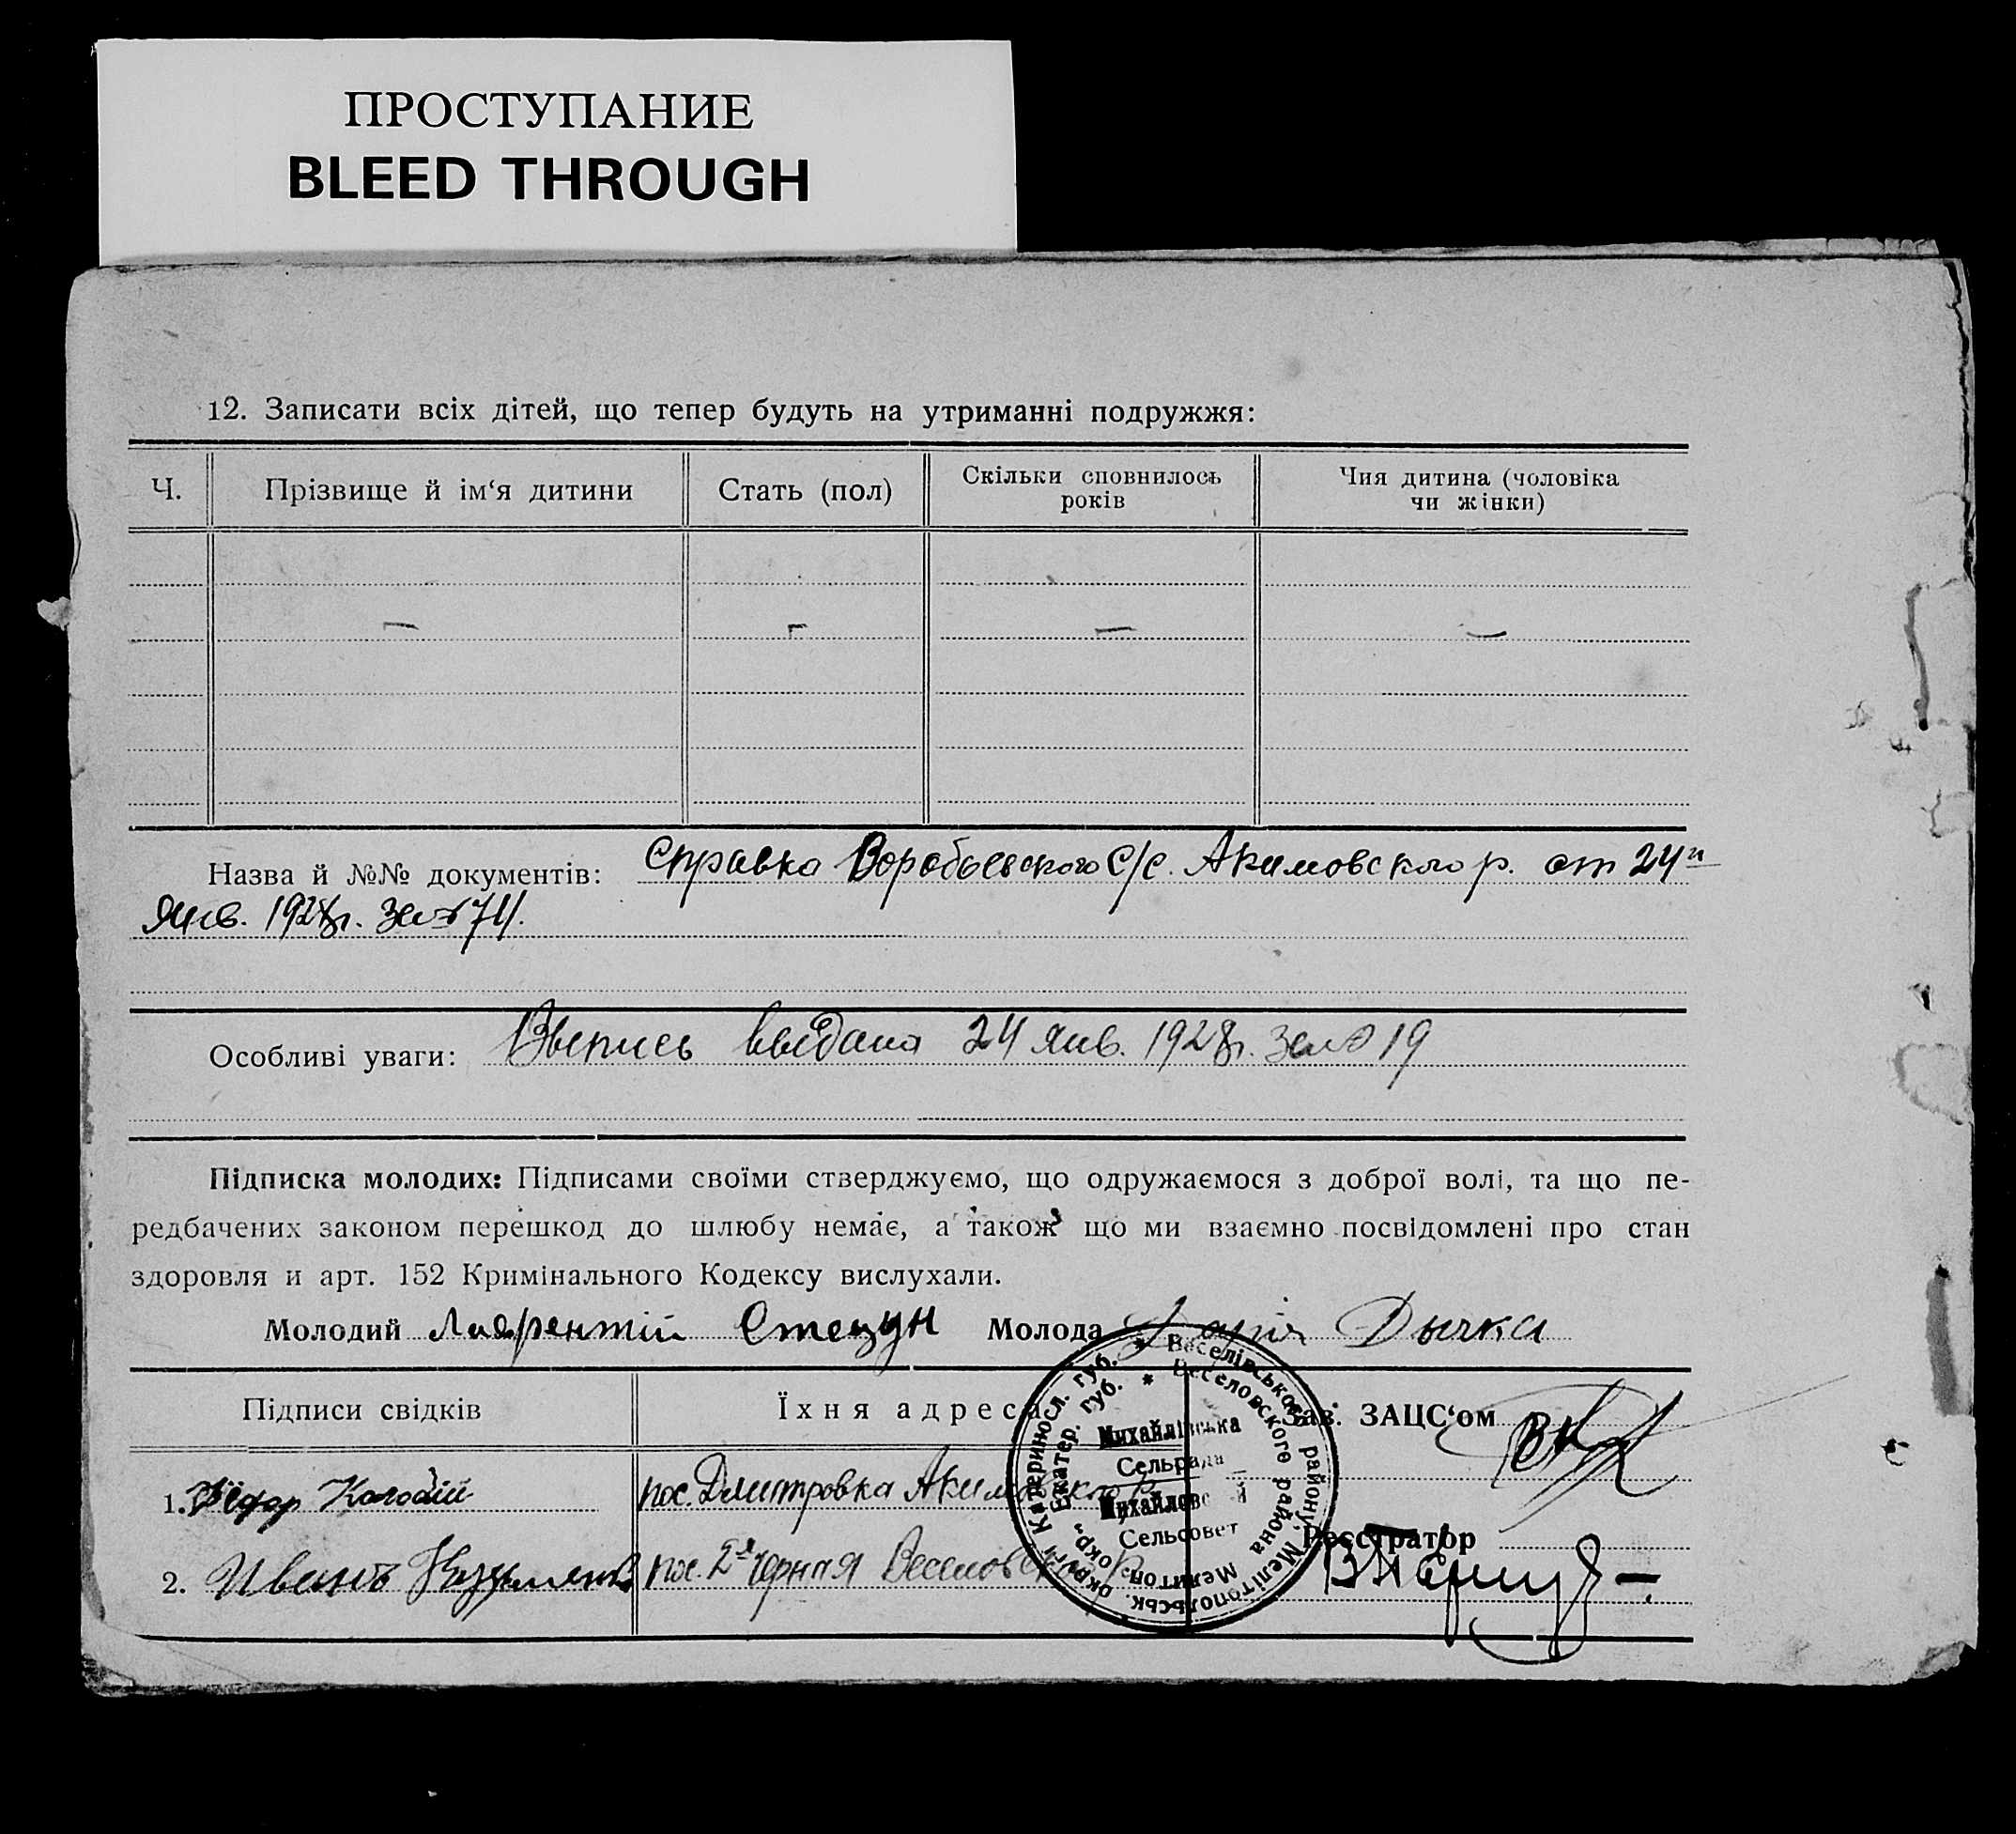 ПРОСТУПАНИЕ
BLEED THROUGH
12. Записати всіх дітей, що тепер будуть на утриманні подружжя:
Ч. Прізвище й ім‘я дитини Стать (пол) Скільки сповнилось років Чия дитина (чоловіка чи жінки)
— — — —
Назва й №№ документів: Справка Воробьевского С/с. Акимовского р. от 24го
янв. 1928г. за №
Особливі уваги: выдана 24 янв. 1928г. за № 19
Підписка молодих: Підписами своїми стверджуємо, що одружаємося з доброї волі, та що пе-
редбачених законом перешкод до шлюбу немає, а також що ми взаємно посвідомлені про стан
здоровля и арт. 152 Кримінального Кодексу вислухали.
Молодий Лаврентій Стецун Молода Дарія Дычка
Підписи свідків Їхня адреса Зав. ЗАЦС‘ом
1. Федор Колодій пос. Дмитровка Акимовского р.
Реєстратор
2. Иванъ пос. 2я Черная Веселовск. р.
* Веселівського району, Мелітопольськ. округи Катериносл. губ.
* Веселовского района Мелитоп. окр., Екатер. губ.
Михайлівська
Сельрада
Михайловский
Сельсовет